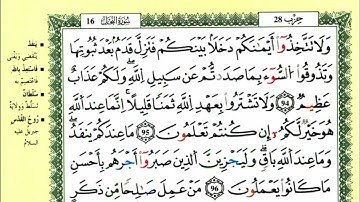 16 سُورَةُ النَّحْل
حزب 28
وَلَا تَتَّخِذُوٓا۟ أَيْمَٰنَكُمْ دَخَلًۢا بَيْنَكُمْ فَتَزِلَّ قَدَمٌۢ بَعْدَ ثُبُوتِهَا
وَتَذُوقُوا۟ ٱلسُّوٓءَ بِمَا صَدَدتُّمْ عَن سَبِيلِ ٱللَّهِ وَلَكُمْ عَذَابٌ
عَظِيمٌ 94 وَلَا تَشْتَرُوا۟ بِعَهْدِ ٱللَّهِ ثَمَنًا قَلِيلًا إِنَّمَا عِندَ ٱللَّهِ
هُوَ خَيْرٌ لَّكُمْ إِن كُنتُمْ تَعْلَمُونَ 95 مَا عِندَكُمْ يَنفَدُ
وَمَا عِندَ ٱللَّهِ بَاقٍ وَلَيَجْزِيَنَّ ٱلَّذِينَ صَبَرُوٓا۟ أَجْرَهُم بِأَحْسَنِ
مَا كَانُوا۟ يَعْمَلُونَ 96 مَنْ عَمِلَ صَٰلِحًا مِّن ذَكَرٍ
يَنفَدُ
يَنقضي ويَفْنى
فاسْتَعِذْ بالله
فاعْتَصِمْ به
سُلْطانٌ
تَسَلُّطٌ ووِلايَةٌ
رُوحُ القُدُسِ
جبريل عليه
السلام